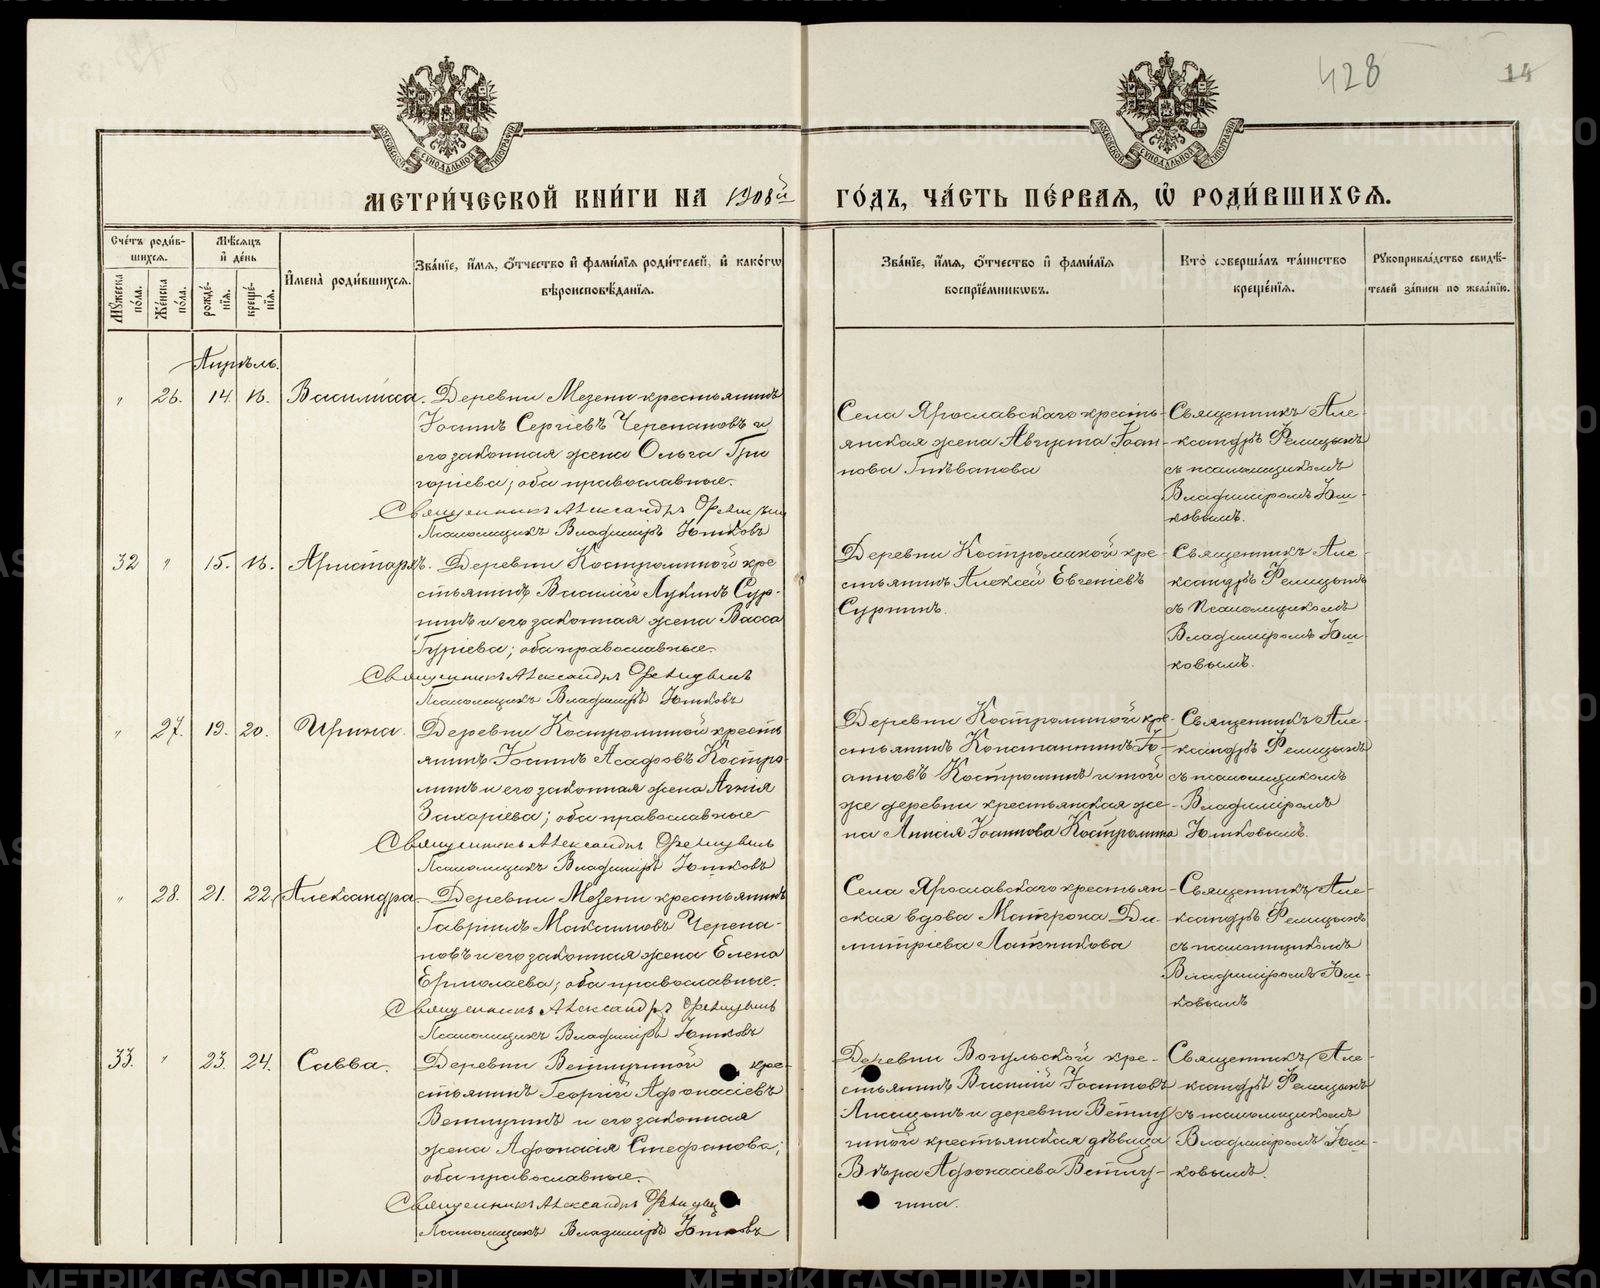 428
14
МОСКОВСКОЙ СѴНОДАЛЬНОЙ ТИПОГРАФІИ
МОСКОВСКОЙ СѴНОДАЛЬНОЙ ТИПОГРАФІИ
МЕТРИ́ЧЕСКОЙ КНИ́ГИ НА 1908й ГО́ДЪ, ЧА́СТЬ ПЕ́РВАѦ, Ѡ҆ РОДИ́ВШИХСѦ.
Сче́тъ роди́в-
шихсѧ.
Мꙋ́жеска по́ла.
Же́нска по́ла.
Мѣ́сѧцъ
и҆ де́нь
рожде́-
нїѧ.
креще́-
нїѧ.
И҆мена̀ роди́вшихсѧ.
Зва́нїе, и҆́мѧ, ѻ҆́тчество и҆ фами́лїѧ роди́телей, и҆ како́гѡ
вѣроисповѣ́данїѧ.
Зва́нїе, и҆́мѧ, ѻ҆́тчество и҆ фами́лїѧ
воспрїе́мникѡвъ.
Кто̀ соверша́лъ та́инство
креще́нїѧ.
Рꙋкоприкла́дство свидѣ́-
телей за́писи по жела́нїю.
Апрѣль.
" 26. 14. 16. Василисса.
Деревни Мезени крестьянинъ
Іоаннъ Сергіевъ Черепановъ и
его законная жена Ольга Гри
горіева; оба православные.
Священникъ Александръ Фелицынъ
Псаломщикъ Владиміръ Юшковъ
Села Ярославскаго кресть-
янская жена Августа Іоан-
нова Гилѣванова
Священникъ Але-
ксандръ Фелицынъ
съ псаломщикомъ
Владиміромъ Юш-
ковымъ.
32 " 15. 16. Аристархъ.
Деревни Костроминой кре
стьянинъ Василій Лукинъ Сур-
нинъ и его законная жена Васса
Гуріева; оба православные.
Священникъ Александръ Фелицынъ
Псаломщикъ Владиміръ Юшковъ
Деревни Костроминой кре-
стьянинъ Алексей Евгеніевъ
Сурнинъ.
Священникъ Але-
ксандръ Фелицынъ
съ псаломщикомъ
Владиміромъ Юш-
ковымъ.
" 27. 19. 20. Ирина.
Деревни Костроминой кресть
янинъ Іоаннъ Асафовъ Костро-
минъ и его законная жена Агнія
Захаріева; оба православные
Священникъ Александръ Фелицынъ
Псаломщикъ Владиміръ Юшковъ
Деревни Костроминой кре-
стьянинъ Константинъ Іо-
анновъ Костроминъ и той
же деревни крестьянская же-
на Анисія Іоаннова Костромина
Священникъ Але-
ксандръ Фелицынъ
съ псаломщикомъ
Владиміромъ
Юшковымъ.
" 28. 21. 22. Александра.
Деревни Мезени крестьянинъ
Гавріилъ Максимовъ Черепа-
новъ и его законная жена Елена
Ермолаева; оба православные.
Священникъ Александръ Фелицынъ
Псаломщикъ Владиміръ Юшковъ
Села Ярославскаго крестьян-
ская вдова Матрона Ди-
митріева
Священникъ Але-
ксандръ Фелицынъ
съ псаломщикомъ
Владиміромъ Юш-
ковымъ
33. " 23. 24. Савва.
Деревни Ветлугиной кре-
стьянинъ Георгій Афонасіевъ
Ветлугинъ и его законная
жена Афонасія Стефанова;
оба православные.
Священникъ Александръ Фелицын
Псаломщикъ Владиміръ Юшковъ
Деревни Вогульской кре-
стьянинъ Василій Іоанновъ
Лисицынъ и деревни Ветлу
гиной крестьянская дѣвица
Вѣра Афонасіева Ветлу-
гина.
Священникъ Але-
ксандръ Фелицынъ
съ псаломщикомъ
Владиміромъ Юш-
ковымъ.
METRIKI.GASO-URAL.RU